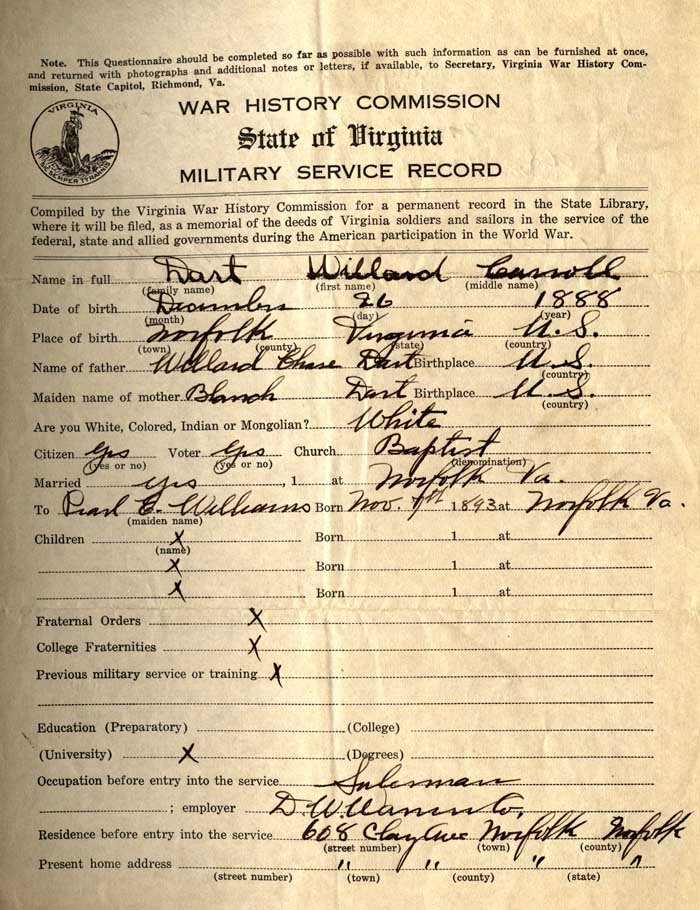 Note. This Questionnaire should be completed so far as possible with such information as can be furnished at once,
and returned with photographs and additional notes or letters, if available, to Secretary, Virginia War History Com-
mission, State Capitol, Richmond, Va.
VIRGINIA
SIC SEMPER TYRANNIS
WAR HISTORY COMMISSION
State of Virginia
MILITARY SERVICE RECORD
Compiled by the Virginia War History Commission for a permanent record in the State Library,
where it will be filed, as a memorial of the deeds of Virginia soldiers and sailors in the service of the
federal, state and allied governments during the American participation in the World War.
Name in full Dart Willard Carroll
(family name) (first name) (middle name)
Date of birth December 26 1888
(month) (day) (year)
Place of birth Norfolk Virginia U.S.
(town) (county) (state) (country)
Name of father Willard Chase Dart Birthplace U.S.
(country)
Maiden name of mother Blanch Dart Birthplace U.S.
(country)
Are you White, Colored, Indian or Mongolian? White
Citizen yes Voter yes Church Baptist
(yes or no) (yes or no) (denomination)
Married yes, 1 at Norfolk Va.
To Pearl E. Williams Born Nov. 7th 1893 at Norfolk Va.
(maiden name)
Children X Born 1 at
(name)
X Born 1 at
X Born 1 at
Fraternal Orders X
College Fraternities X
Previous military service or training X
Education (Preparatory) (College)
(University) X (Degrees)
Occupation before entry into the service Salesman
; employer D. W.
Residence before entry into the service 608 Clay Ave Norfolk Norfolk
(street number) (town) (county)
Present home address " " " "
(street number) (town) (county) (state)